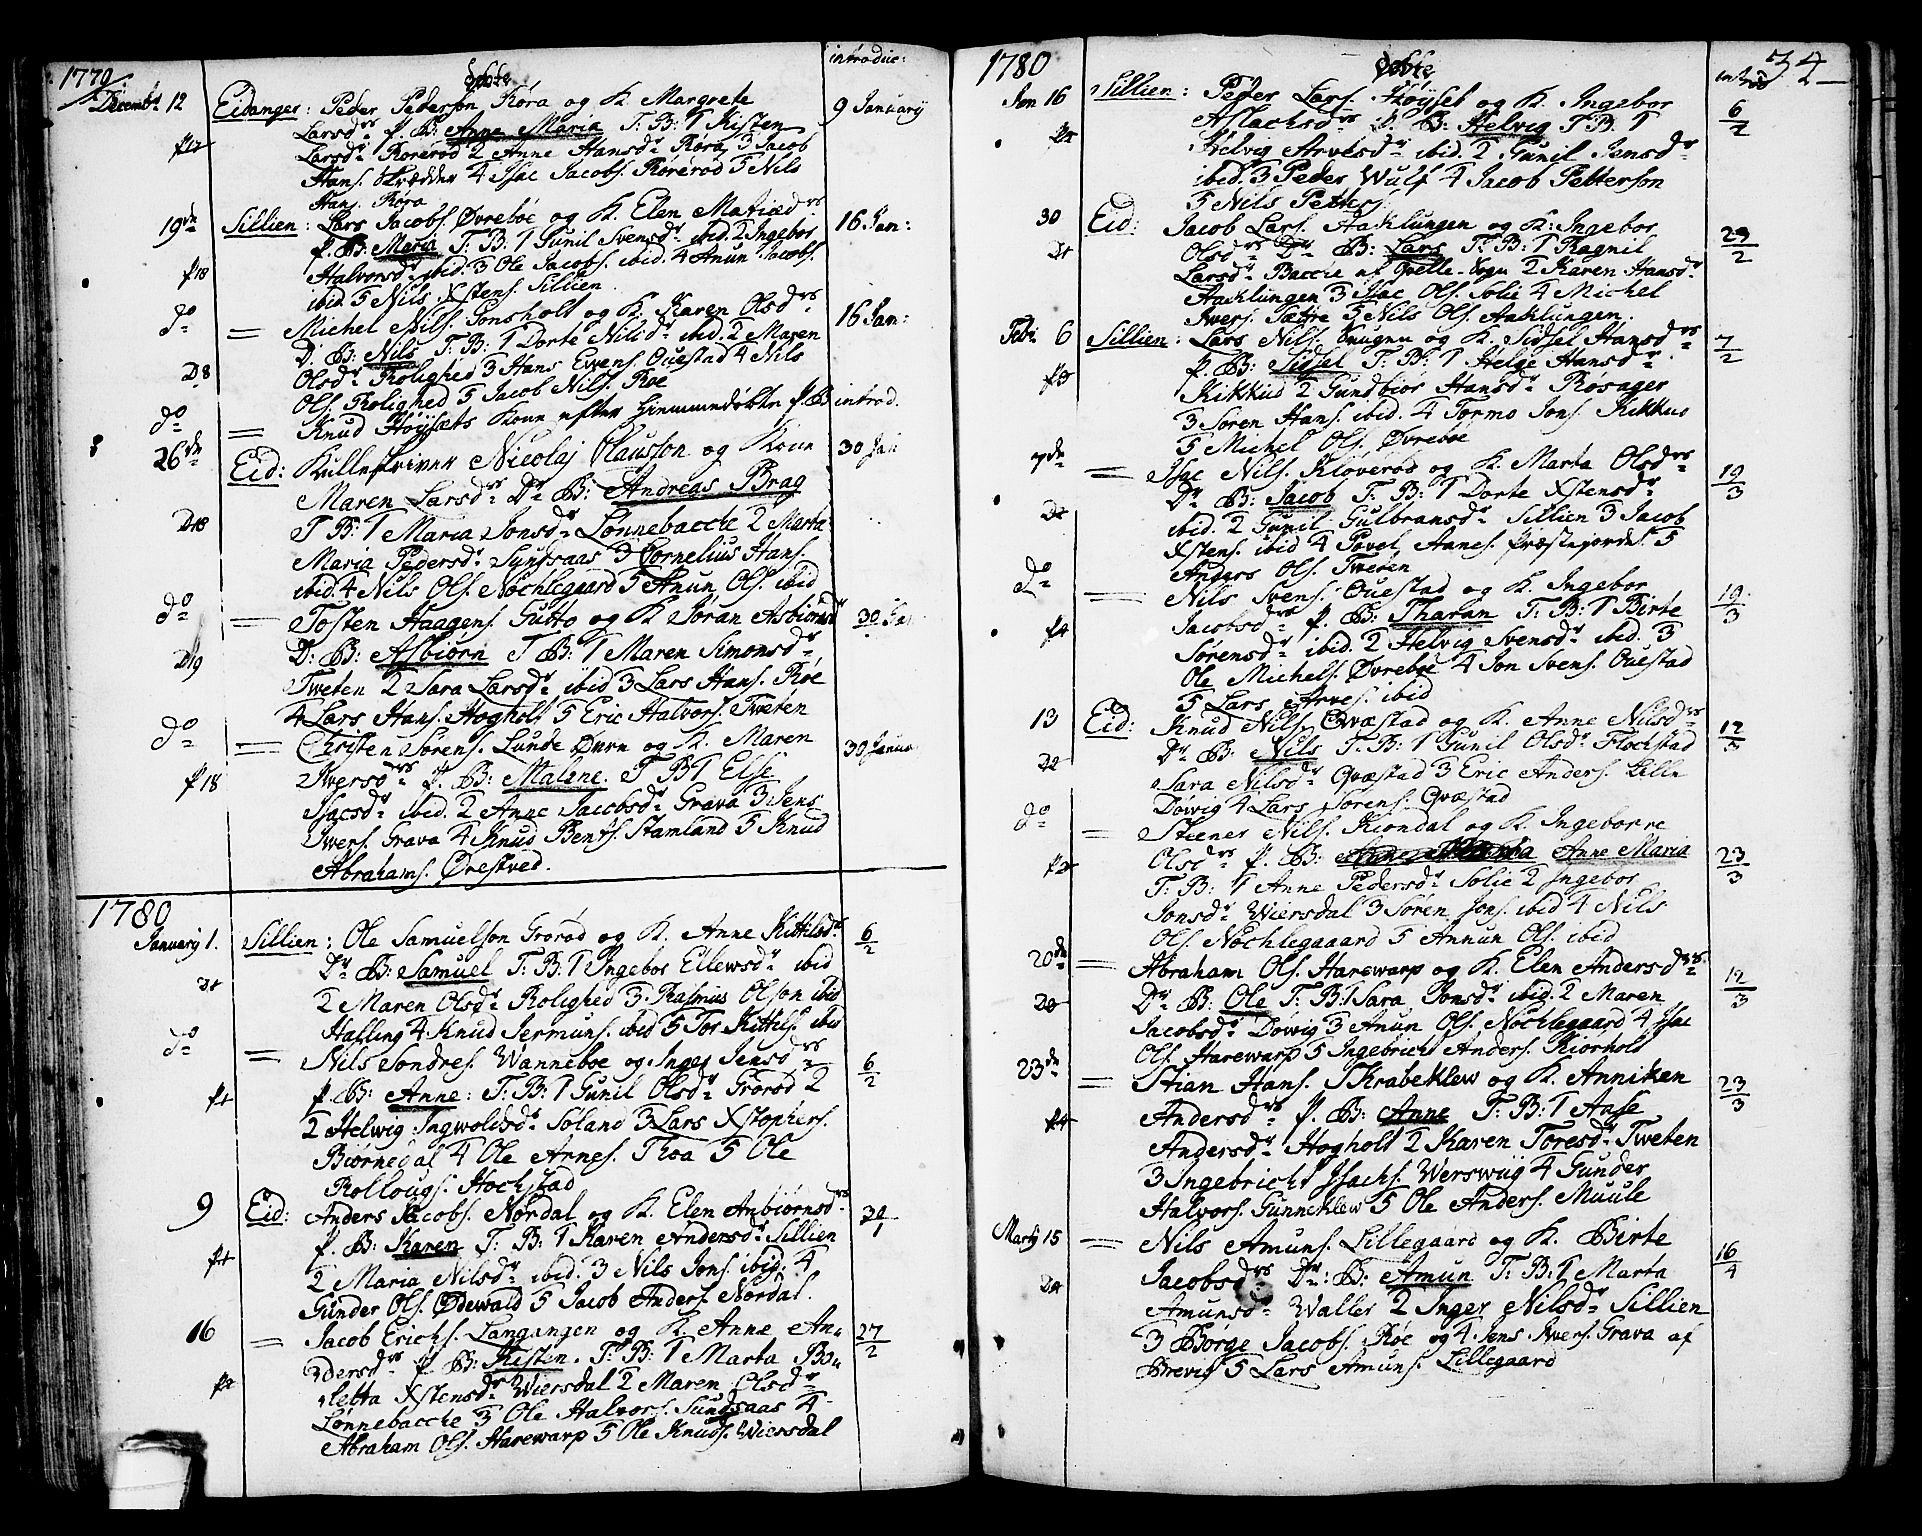 1779
Døbte
introduc:
Decembr 12
Eidanger: Peder Pederson Røra og K. Margrete
9 Januarij
Larsdr P. B: Anne Maria T: B: 1 Kisten
Larsdr Rørerød 2 Anne Hansdr Røra 3 Jacob
Hans. Skrædder 4 Isac Jacobs. Rørerød 5 Nils
Hans. Røra
19de
Sillien: Lars Jacobs. Øvreboe og K. Elen Matiædrs
16 Jan:
P. B: Maria T: B: 1 Gunil Svensdr ibid. 2 Ingebor
Halvorsdr ibid. 3 Ole Jacobs. ibid. 4 Anun Jacobs.
ibid 5 Nils Xstens. Sillien
do
Michel Nils. Gonsholt og K. Karen Olsdrs
16 Jan:
D: B: Nils T: B: 1 Dorte Nilsdr ibid. 2 Maren
Olsdr Rolighed 3 Hans Ewens. Ouestad 4 Nils
Ols. Rolighed 5 Jacob Nils. Roe
do
Knud Høysæts Kone efter Hiemmedøbte P. B
introd.
26de
Eid: Kulleskriver Nicolaj Clausson og Kone
30 Jan
Maren Larsdr Dr B: Andreas Brag
T B: 1 Maria Jonsdr Lønnebacche 2 Marta
Maria Pedersdr Syndsaas 3 Cornelius Hans.
ibid. 4 Nils Ols. Nøchlegaard 5 Anun Ols. ibid
do
Tosten Haagens. Gutto og K Søran Asbiørnsdr
30 Jan
D: B: Asbiørn T B: 1 Maren Simonsdr
Tweten 2 Sara Larsdr ibid 3 Lars Hans. Røe
4 Lars Hans. Hogholt 5 Eric Halvors. Tweten
do
Christen Sørens. Lunde Dvrn og K. Maren
30 Janua
Iversdrs P. B: Malene. T B 1 Else
Isacsdr ibid. 2 Anne Jacobsdr Grava 3 Jens
Iwers. Grava 4 Knud Bents. Stamland 5 Knud
Abrahams. Ørestved.
1780
Januarij 1.
Sillien: Ole Samuelson Grorød og K. Anne Kittilsdr
6/2
Dr B: Samuel T: B: 1 Ingebor Ellewsdr ibid
2 Maren Olsdr Rolighed 3 Rasmus Olson ibid
Hafling 4 Knud Jermuns. ibid 5 Tor Kittels. ibid
do
Nils Sondres. Wanneboe og Inger Jensdrs
6/2
P. B: Anne: T: B: 1 Gunil Olsdr Grorød 2
2 Helwig Ingwoldsdr Søland 3 Lars Xstophers.
Biørnedal 4 Ole Arnes. Thoa 5 Ole
Rollougs. Hochstad
9
Eid: Anders Jacobs. Nørdal og K. Elen Anbiørnsdrs
P. B: Karen T: B: 1 Karen Andersdr Sillien
2 Maria Nilsdr ibid: 3 Nils Jons. ibid: 4
Gunder Ols. Ødewald 5 Jacob Anders. Nørdal.
16
Jacob Erichs. Langangen og K. Anne An-
27/2
dersdrs P. B: Kisten. T: B: 1 Marta Bo-
letta Xstensdr Wiersdal 2 Maren Olsdr
Lønnebacche 3 Ole Halvors. Sundsaas 4
Abraham Ols. Harewarp 5 Ole Knuds. Wiersdal
1780
Døbte
introd
34
Jan 16
Sillien: Peder Lars. Høyset og K. Ingebor
6/2
Aslachsdrs P B: Helvig T: B: 1
Helvig Arvesdr ibid. 2 Gunil Jensdr
ibid. 3 Peder Wulf 4 Jacob Petterson
5 Nils Petters.
30
Eid: Jacob Lars. Aaklungen og K: Ingebor
29/2
Olsdrs Dr B: Lars T: B: 1 Ragnil
Larsdr Bacche af Gselle-Sogn 2 Karen Hansdr
Aaklungen 3 Isac Ols. Solie 4 Michel
Iwers. Sætre 5 Nils Ols. Aaklungen.
Febr 6
Sillien: Lars Nils. Snugnu og K. Sidsel Hansdrs
7/2
P. B: Sidsel T: B: 1 Helge Hansdr
Kikkud 2 Gundbior Hansdr Rosager
3 Søren Hans. ibid. 4 Tormo Jons. Kikkus
5 Michel Ols. Øvreboe
7de
Isac Nils. Kløverød og K. Marta Olsdrs
19/3
Dr B: Jacob T: B: 1 Dorte Xstensdr
ibid. 2 Gunil Gulbransdr Sillien 3 Jacob
Xstens. ibid 4 Povel Aanes. Præstejordet 5
Anders Ols. Tweten
do
Nils Svens. Ouestad og K. Ingebor
19/3
Jacobsdrs P. B: Tharan T: B: 1 Birte
Sørensdr ibid. 2 Helvig Svensdr ibid. 3
Ole Michels. Øvreboe 4 Jon Svens. Ouestad
5 Lars Arves. ibid
13
Eid: Knud Nils. Qvæstad og K. Anne Nilsdrs
12/3
Dr B: Nils T: B: 1 Gunil Olsdr Flochstad
Sara Nilsdr Qvæstad 3 Eric Anders. Lille
Døvig 4 Lars Sørens. Qvæstad
do
Steener Nils. Kiondal og K. Ingeborre
Olsdrs P. B: Anne Maria
23/3
T: B: 1 Anne Pedersdr Solie 2 Ingebor
Jonsdr Wiersdal 3 Søren Jons. ibid 4 Nils
Ols. Nøchlegaaard 5 Annun Ols. ibid
20de
Abraham Ols. Harewarp og K. Elen Andersdrs
12/3
Dr B: Ole T: B: 1 Sara Jonsdr ibid. 2 Maren
Jacobsdr Døvig 3 Anun Ols. Nøchlegaard 4 Isac
Ols. Harewarp 5 Ingebricht Anders. Kiorholt
23de
Stian Hans. Skrabeklew og K. Anniken
23/3
Andersdrs P. B: Anne T: B: 1 Aase
Andersdr Hogholt 2 Karen Toresdr Tweten
3 Ingebricht Isachs. Werswiig 4 Gunder
Halvors. Gunneklew 5 Ole Anders. Muule
Martij 15
Nils Amuns. Lillegaard og K. Birte
16/4
Jacobsdrs Dr: B: Amun T: B: 1 Marta
Amunsdr Waller 2 Inger Nilsdr Sillien
3 Børge Jacobs. Røe og 4 Jens Iwers. Grava af
Brevig 5 Lars Amuns. Lillegaard